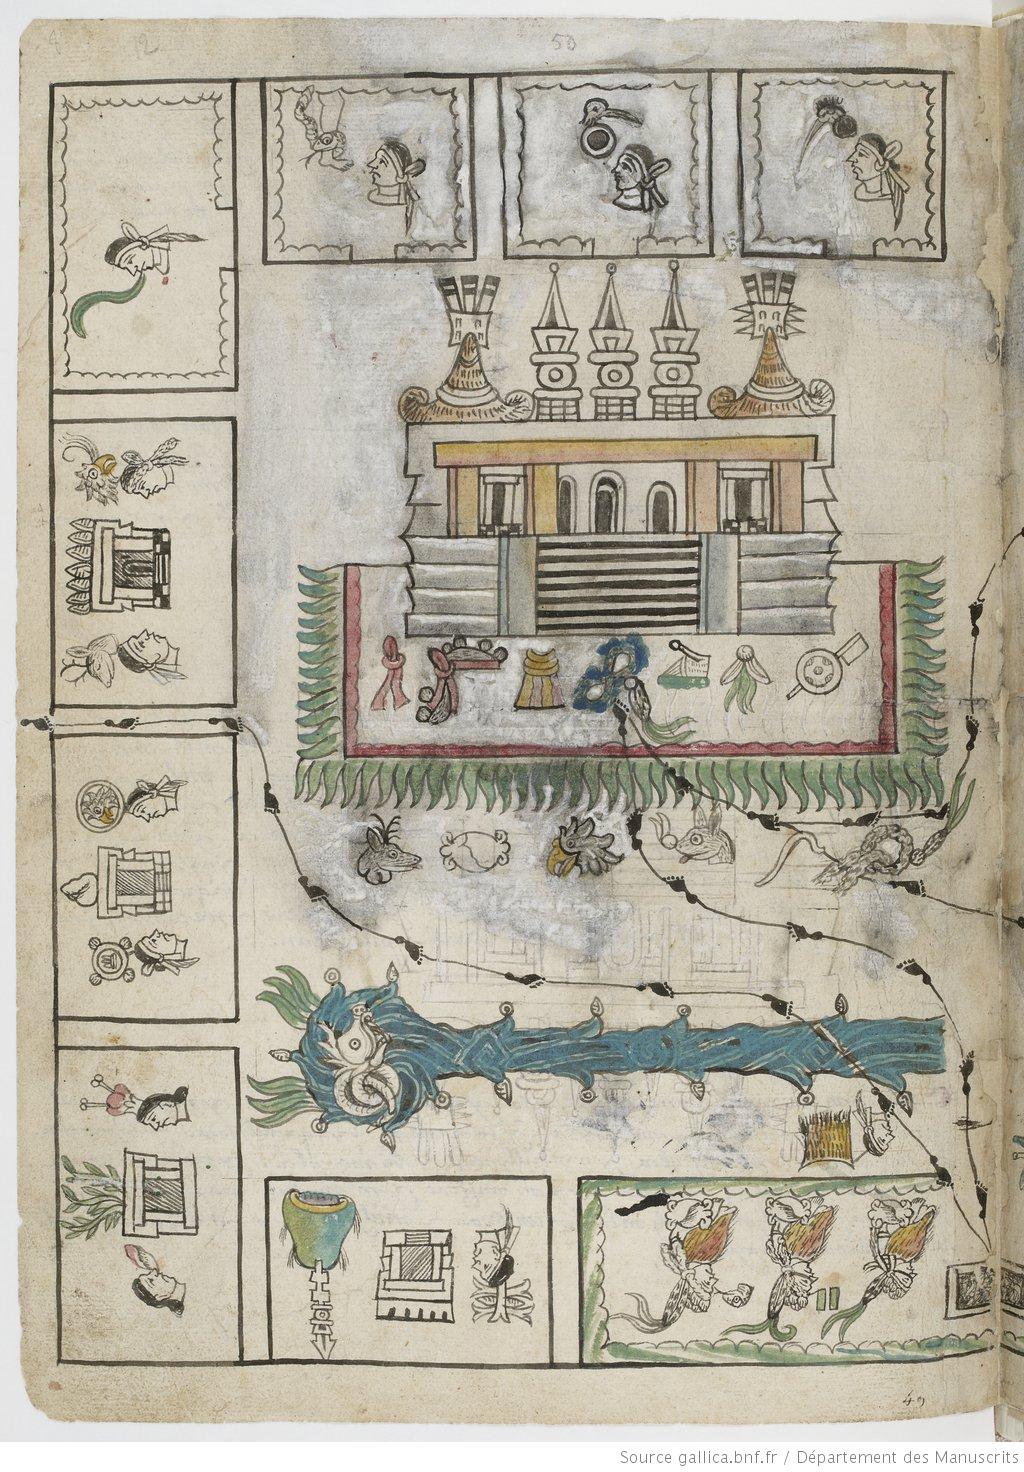 50
49
Source gallica.bnf.fr / Département des Manuscrits